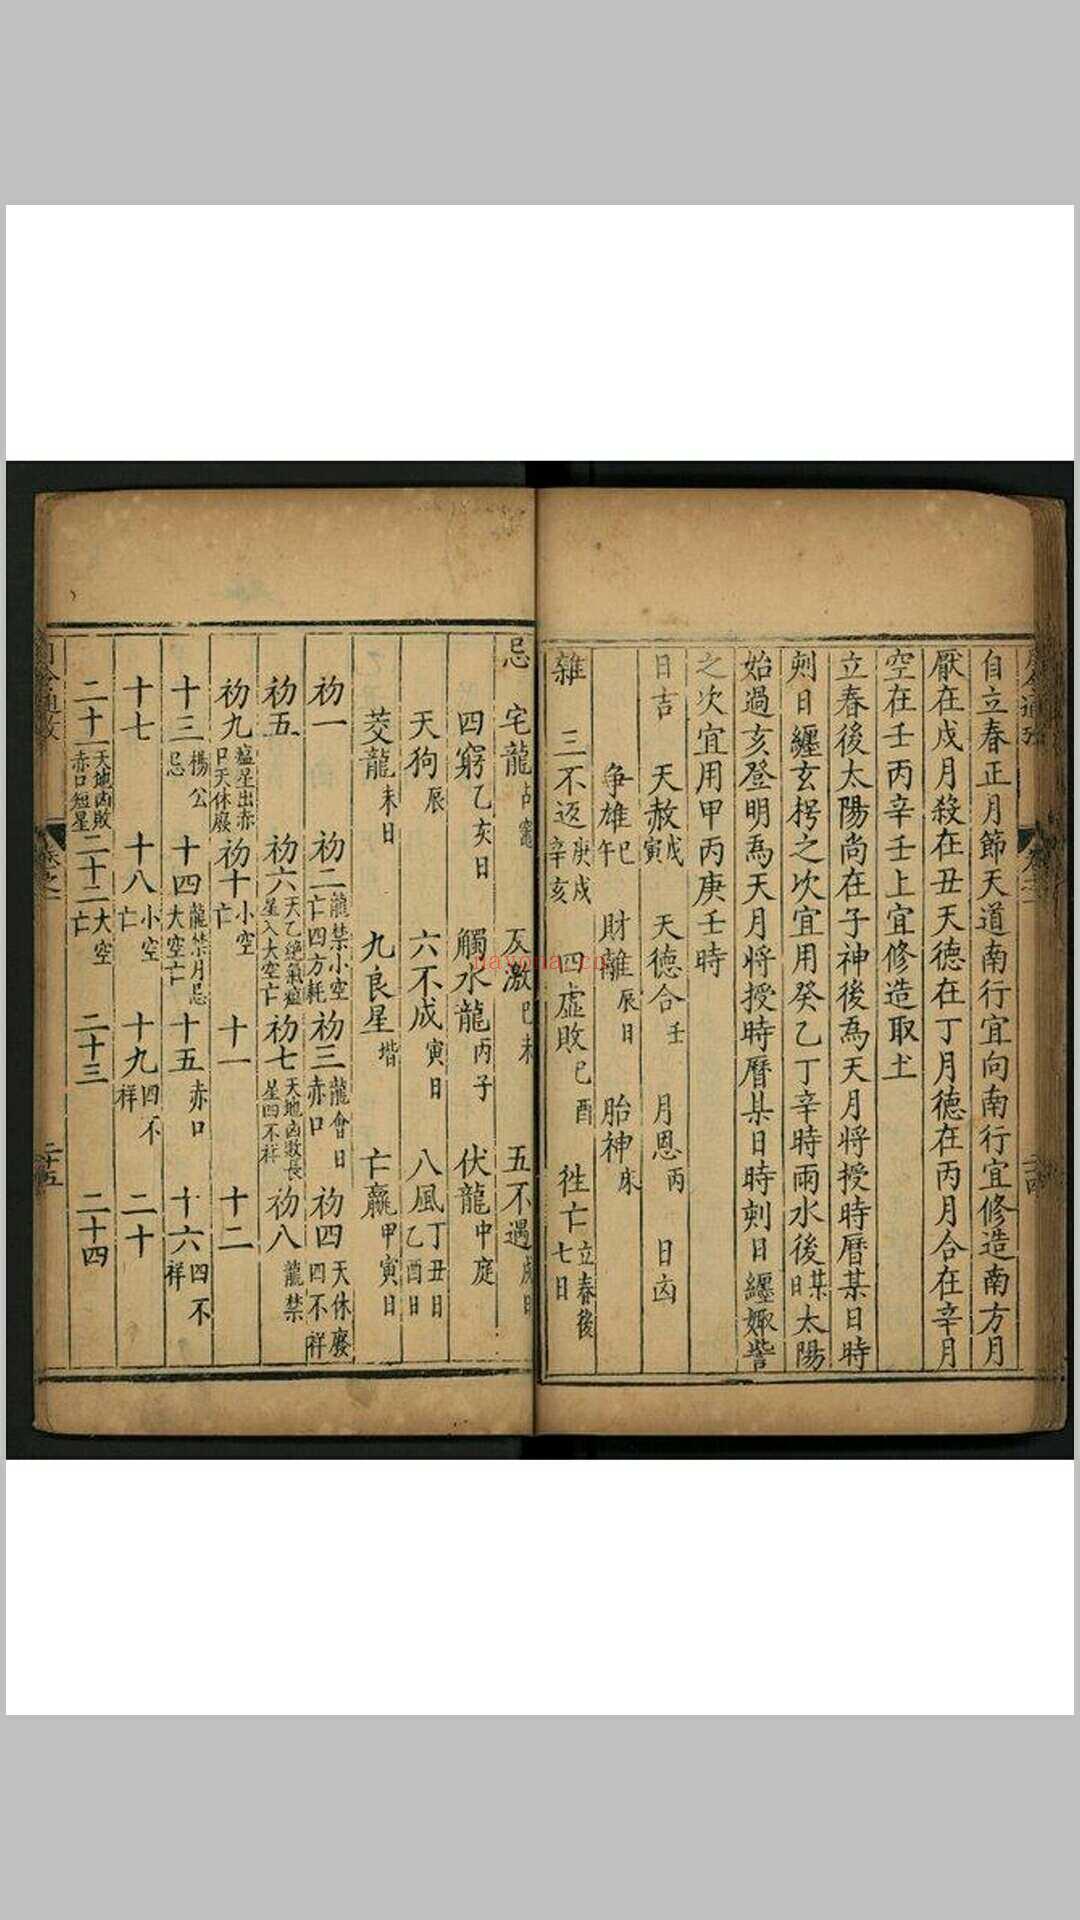 自立春正月節天道南行宜向南行宜修造南方月
厭在戌月殺在丑天德在丁月德在丙月合在辛月
空在壬丙辛壬上宜修造取土
立春後太陽尚在子神後為天月將授時曆某日時
刻日纏玄枵之次宜用癸乙丁辛時雨水後某日太陽
始過亥登明為天月將授時曆某日時刻日纏娵訾
之次宜用甲丙庚壬時
日吉 天赦戊寅 天德合壬 月恩丙 日凶
爭雄巳午 財離辰日 胎神床
雜 三不返庚戌辛亥 四虛敗己酉 徃亡立春後七日
忌 宅龍占竈 反激巳未 五不遇
四窮乙亥日 觸水龍丙子 伏龍中庭
天狗辰 六不成寅日 八風丁丑日乙酉日
茭龍未日 九良星堦 亡羸甲寅日
初一 初二龍禁小空亡四方耗 初三龍會日赤口 初四天休廢四不祥
初五 初六天乙絶氣瘟星入大空亡 初七天地凶敗長星四不祥 初八龍禁
初九瘟星出赤口天休廢 初十小空亡 十一 十二
十三楊公忌 十四龍禁月忌大空亡 十五赤口 十六四不祥
十七 十八小空亡 十九四不祥 二十
二十一天地凶敗赤口短星 二十二大空亡 二十三 二十四
二十五
nayona.cn